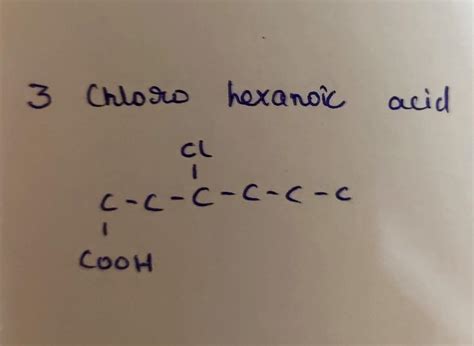 3 Chloro hexanoic acid
CL
C-C-C-C-C-C
COOH